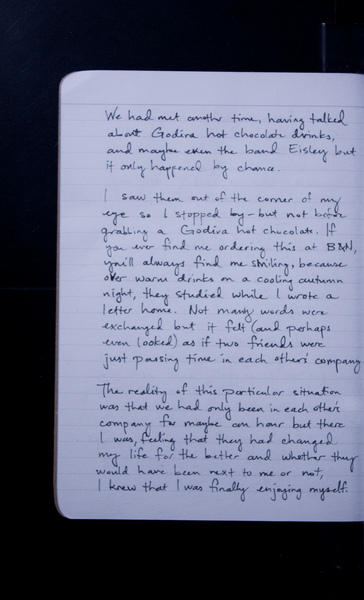 We had met another time, having talked
about Godiva hot chocolate drinks,
and maybe even the band Eisley but
it only happened by chance.
I saw them out of the corner of my
eye so I stopped by - but not before
grabbing a Godiva hot chocolate. If
you ever find me ordering this at B&N,
you'll always find me smiling, because
over warm drinks on a cooling autumn
night, they studied while I wrote a
letter home. Not many words were
exchanged but it felt (and perhaps
even looked) as if two friends were
just passing time in each other's company
The reality of this particular situation
was that we had only been in each other's
company for maybe an hour but there
I was, feeling that they had changed
my life for the better and whether they
would have been next to me or not,
I knew that I was finally enjoying myself.